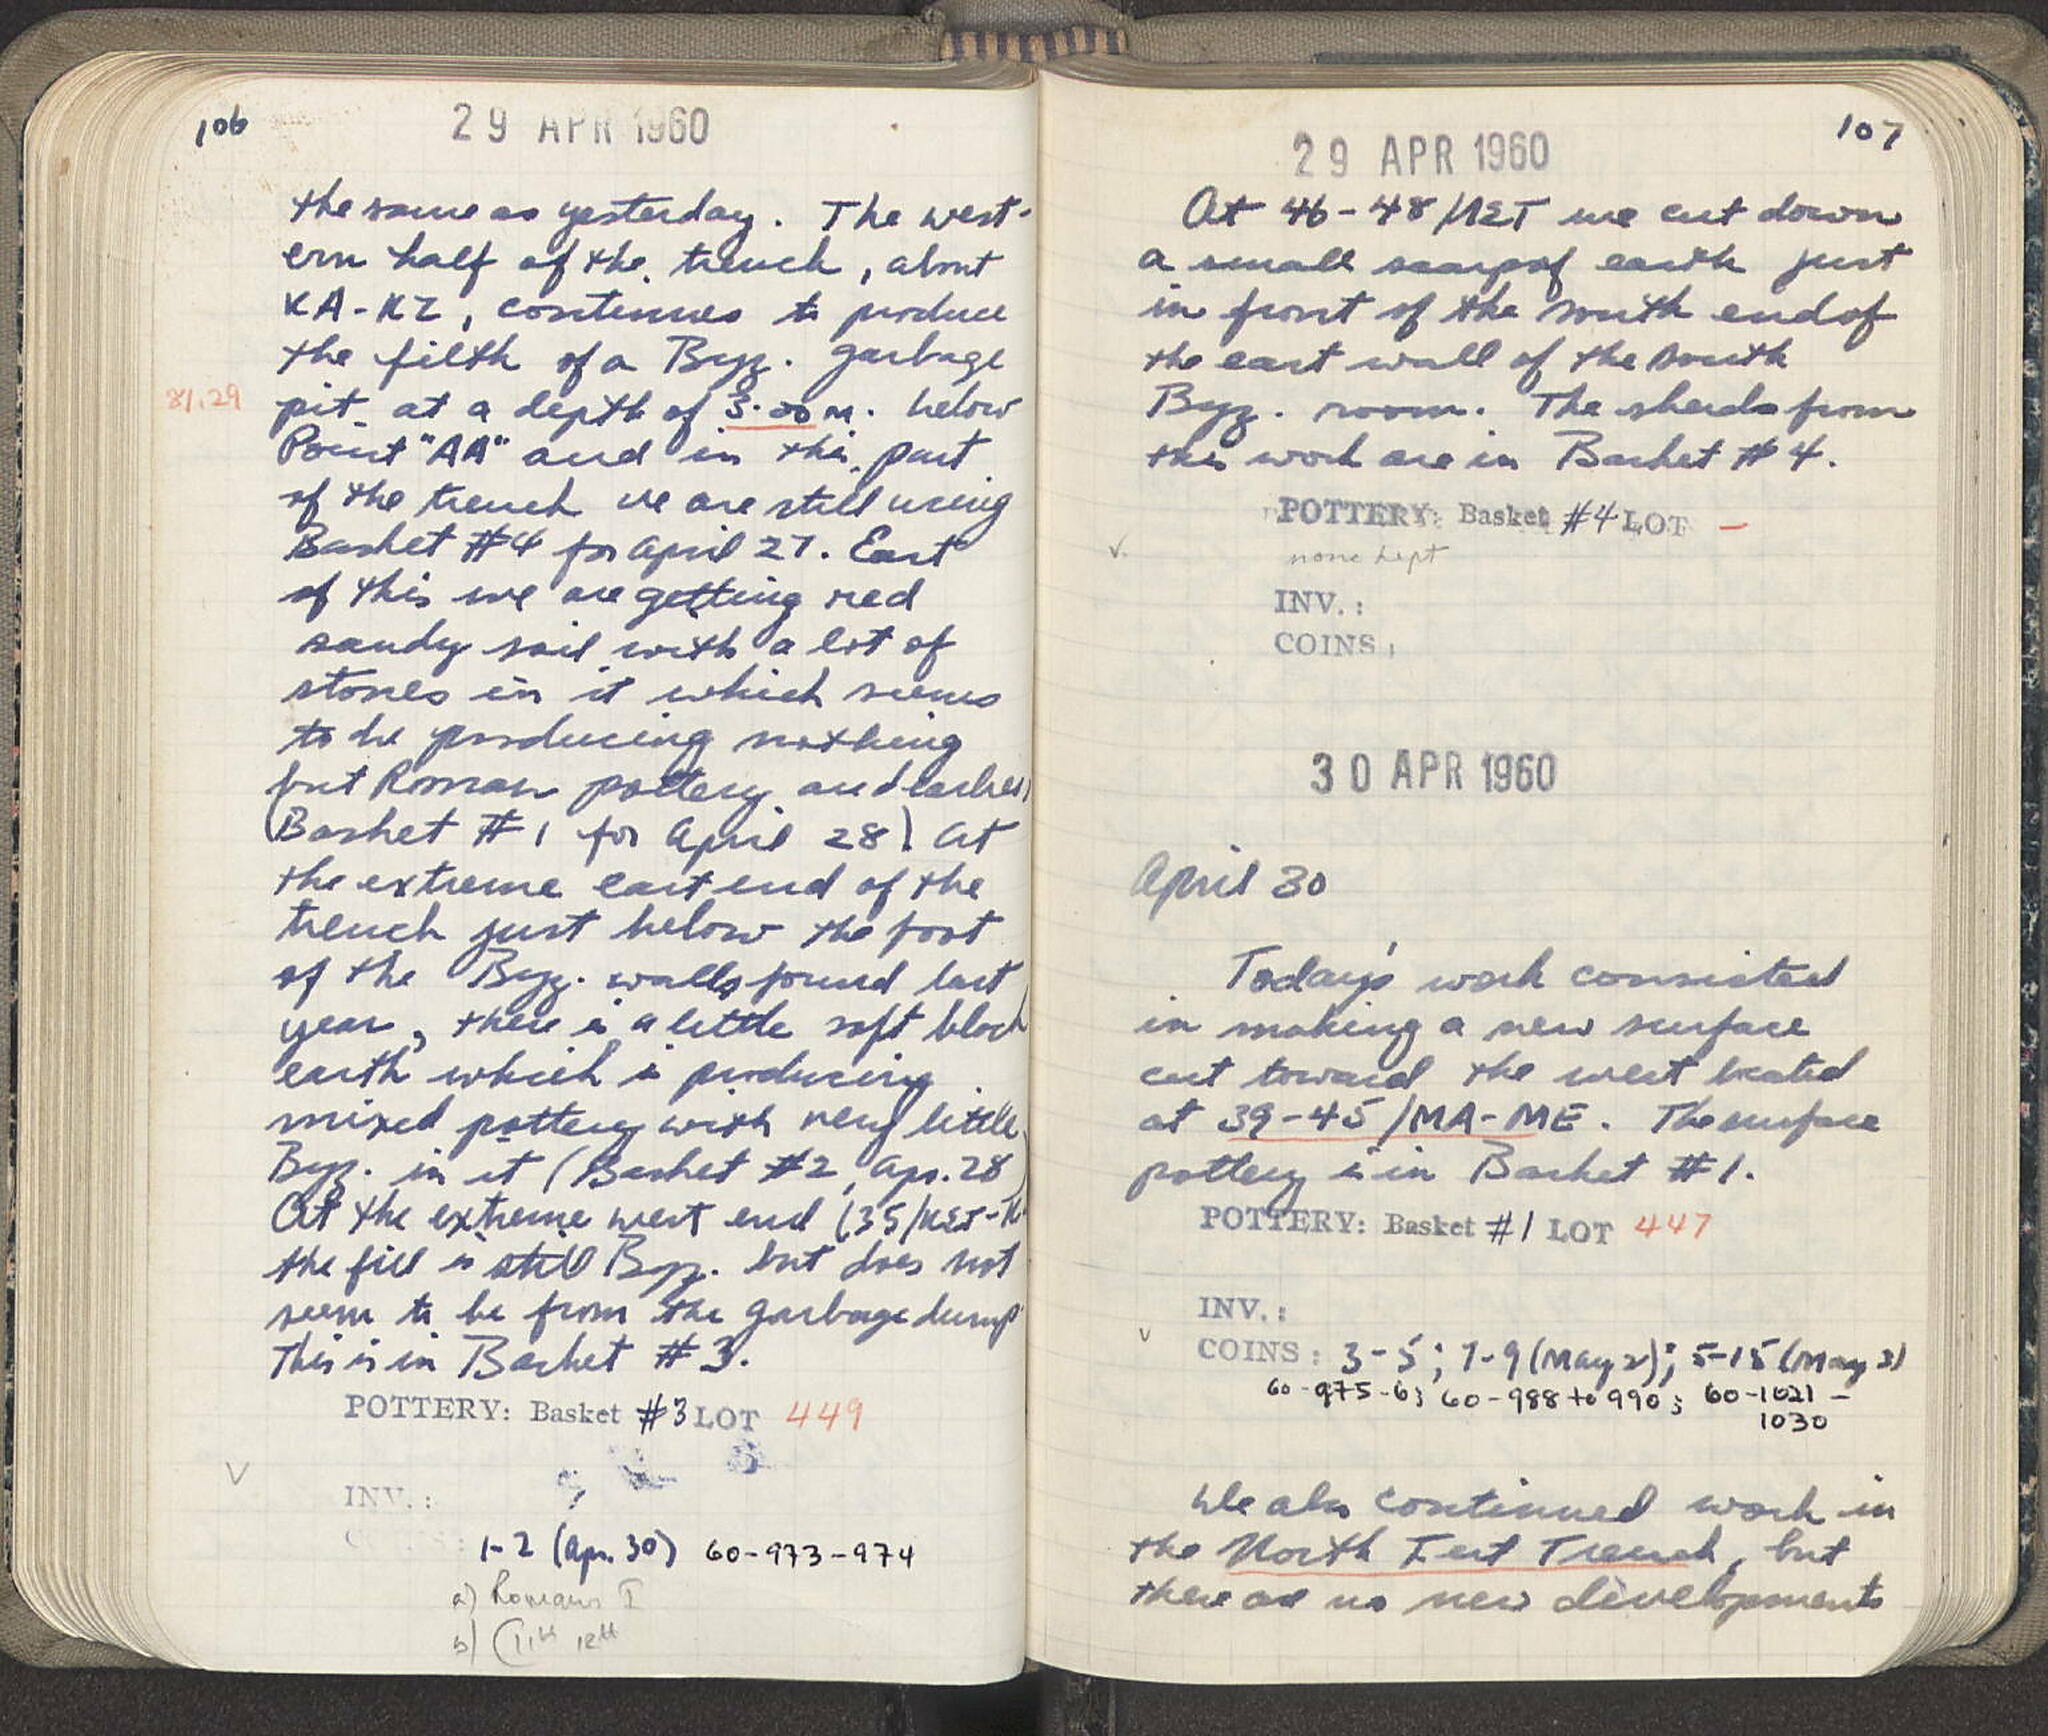 106
29 APR 1960
the same as yesterday. The west-
ern half of the trench, about
KA-KZ, continues to produce
the filth of a Byz. garbage
81.29
pit at a depth of 3.00 m. below
Point "AA" and in this part
of the trench we are still using
Basket #4 for April 27. East
of this we are getting red
sandy soil with a lot of
stones in it which seems
to be producing nothing
but Roman pottery and earlier
(Basket #1 for April 28). At
the extreme east end of the
trench just below the foot
of the Byz. walls found last
year, there is a little soft black
earth which is producing
mixed pottery with very little
Byz. in it (Basket #2, Apr. 28)
At the extreme west end (35/
the fill is still Byz. but does not
seem to be from the garbage dump
This is in Basket #3.
POTTERY: Basket #3 LOT 449
V
INV. :
1-2 (Apr. 30) 60-973-974
a) Romans I
b) (11th 12th
107
29 APR 1960
At 46-48/ we cut down
a small scarp of earth just
in front of the south end of
the east wall of the south
Byz. room. The sherds from
this work are in Basket #4.
POTTERY: Basket #4 LOT —
v. none kept
INV. :
COINS :
30 APR 1960
April 30
Today's work consisted
in making a new surface
cut toward the west located
at 39-45/MA-ME. The surface
pottery is in Basket #1.
POTTERY: Basket #1 LOT 447
INV. :
v COINS : 3-5; 7-9 (May 2); 5-15 (May 3)
60-975-6; 60-988 to 990; 60-1021-
1030
We also continued work in
the North Test Trench, but
there are no new developments